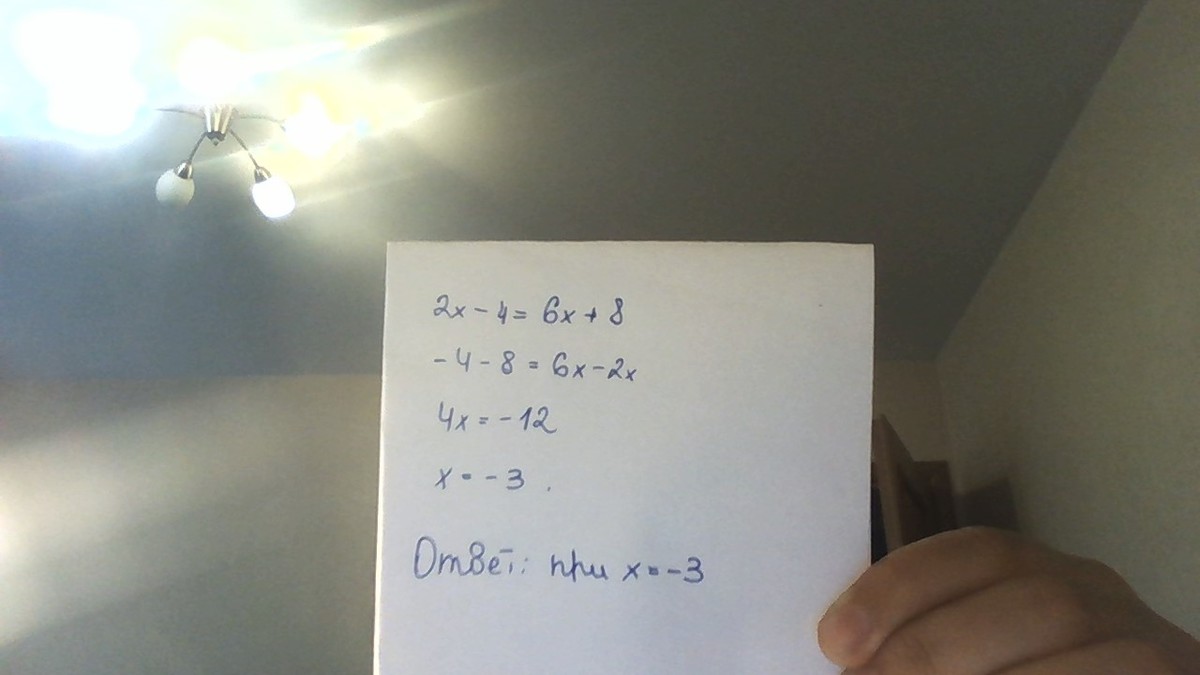 2x - 4 = 6x + 8
-4 - 8 = 6x - 2x
4x = -12
x = -3.
Ответ: при x = -3